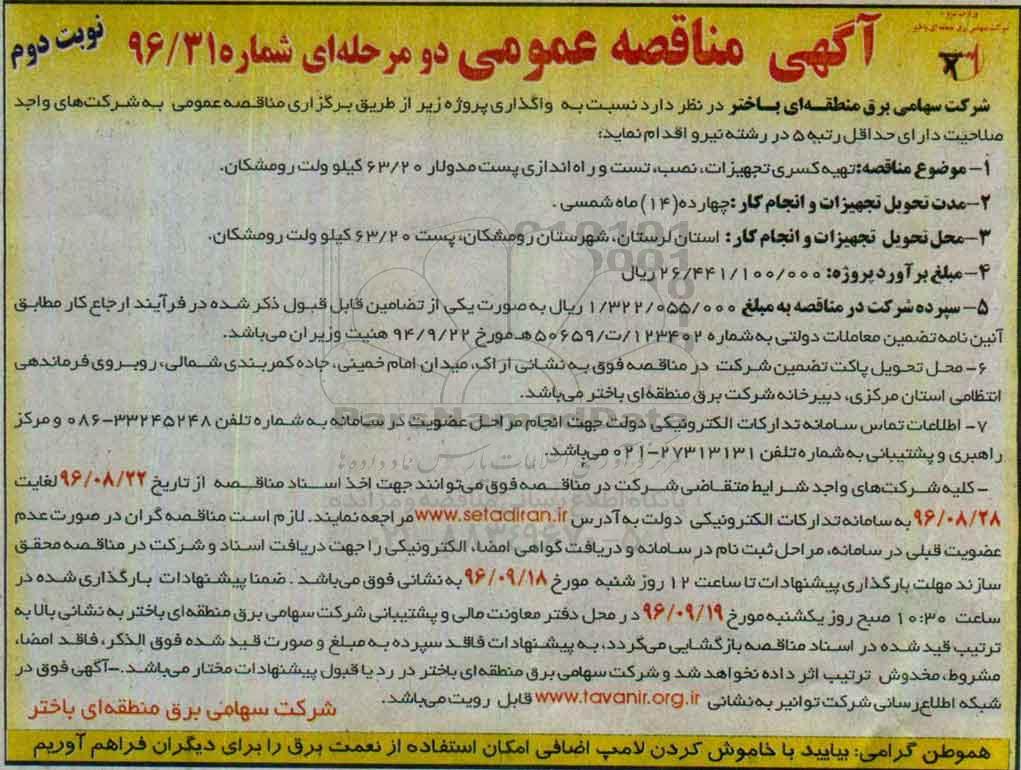 آگهی مناقصه عمومی دو مرحله‌ای شماره ۹۶/۳۱
نوبت دوم
شرکت سهامی برق منطقه‌ای باختر در نظر دارد نسبت به واگذاری پروژه زیر از طریق برگزاری مناقصه عمومی به شرکت‌های واجد
صلاحیت دارای حداقل رتبه ۵ در رشته نیرو اقدام نماید:
۱- موضوع مناقصه: تهیه کسری تجهیزات، نصب، تست و راه اندازی پست مدولار ۶۳/۲۰ کیلو ولت رومشکان.
۲- مدت تحویل تجهیزات و انجام کار: چهارده (۱۴) ماه شمسی.
۳- محل تحویل تجهیزات و انجام کار: استان لرستان، شهرستان رومشکان، پست ۶۳/۲۰ کیلو ولت رومشکان.
۴- مبلغ برآورد پروژه: ۲۶/۴۴۱/۱۰۰/۰۰۰ ریال
۵- سپرده شرکت در مناقصه به مبلغ ۱/۳۲۲/۰۵۵/۰۰۰ ریال به صورت یکی از تضامین قابل قبول ذکر شده در فرآیند ارجاع کار مطابق
آئین نامه تضمین معاملات دولتی به شماره ۱۲۳۴۰۲/ت/۵۰۶۵۹ هـ مورخ ۹۴/۹/۲۲ هئیت وزیران می‌باشد.
۶- محل تحویل پاکت تضمین شرکت در مناقصه فوق به نشانی اراک، میدان امام خمینی، جاده کمربندی شمالی، روبروی فرماندهی
انتظامی استان مرکزی، دبیرخانه شرکت برق منطقه‌ای باختر می‌باشد.
۷- اطلاعات تماس سامانه تدارکات الکترونیکی دولت جهت انجام مراحل عضویت در سامانه به شماره تلفن ۳۳۲۴۵۲۴۸-۰۸۶ و مرکز
راهبری و پشتیبانی به شماره تلفن ۲۷۳۱۳۱۳۱-۰۲۱ می‌باشد.
- کلیه شرکت‌های واجد شرایط متقاضی شرکت در مناقصه فوق می‌توانند جهت اخذ اسناد مناقصه از تاریخ ۹۶/۰۸/۲۲ لغایت
۹۶/۰۸/۲۸ به سامانه تدارکات الکترونیکی دولت به آدرس www.setadiran.ir مراجعه نمایند. لازم است مناقصه گران در صورت عدم
عضویت قبلی در سامانه، مراحل ثبت نام در سامانه و دریافت گواهی امضاء الکترونیکی را جهت دریافت اسناد و شرکت در مناقصه محقق
سازند مهلت بارگذاری پیشنهادات تا ساعت ۱۲ روز شنبه مورخ ۹۶/۰۹/۱۸ به نشانی فوق می‌باشد. ضمنا پیشنهادات بارگذاری شده در
ساعت ۱۰:۳۰ صبح روز یکشنبه مورخ ۹۶/۰۹/۱۹ در محل دفتر معاونت مالی و پشتیبانی شرکت سهامی برق منطقه‌ای باختر به نشانی بالا به
ترتیب قید شده در اسناد مناقصه بازگشایی می‌گردد، به پیشنهادات فاقد سپرده به مبلغ و صورت قید شده فوق الذکر، فاقد امضاء،
مشروط، مخدوش ترتیب اثر داده نخواهد شد و شرکت سهامی برق منطقه‌ای باختر در رد یا قبول پیشنهادات مختار می‌باشد. -آگهی فوق در
شبکه اطلاع‌رسانی شرکت توانیر به نشانی www.tavanir.org.ir قابل رویت می‌باشد.
شرکت سهامی برق منطقه‌ای باختر
هموطن گرامی: بیایید با خاموش کردن لامپ اضافی امکان استفاده از نعمت برق را برای دیگران فراهم آوریم
ParsNamadData